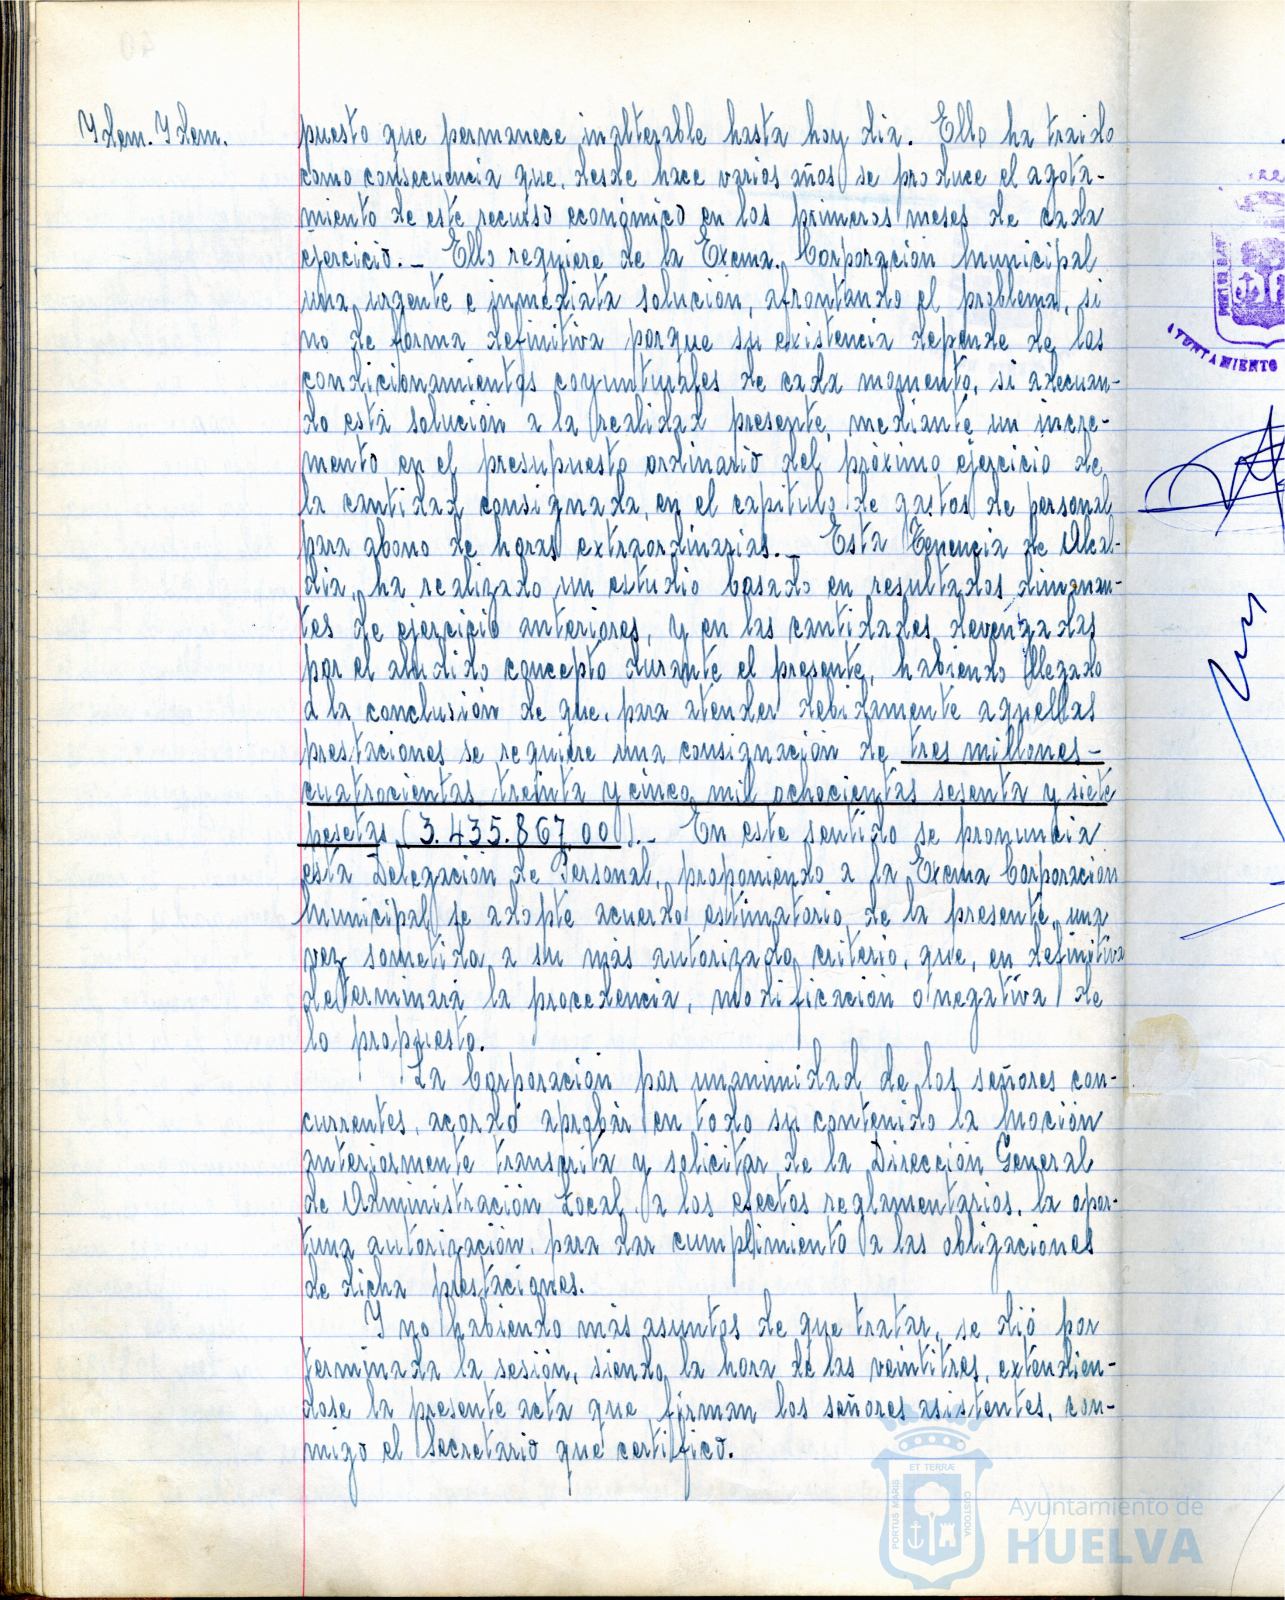 Idem. Idem.
puesto que permanece inalterable hasta hoy dia. Ello ha traido
como consecuencia que, desde hace varios años se produce el agota-
miento de este recurso económico en los primeros meses de cada
ejercicio.- Ello requiere de la Excma. Corporación Municipal
una urgente e inmediata solución, afrontando el problema, si
no de forma definitiva porque su existencia depende de los
condicionamientos coyunturales de cada momento, si adecuan-
do esta solución a la realidad presente, mediante un incre-
mento en el presupuesto ordinario del próximo ejercicio de
la cantidad consignada, en el capitulo de gastos de personal
para abono de horas extraordinarias.- Esta Tenencia de Alcal-
dia, ha realizado un estudio basado en resultados dimanan-
tes de ejercicio anteriores, y en las cantidades devengadas
por el aludido concepto durante el presente, habiendo llegado
a la conclusión de que, para atender debidamente aquellas
prestaciones se requiere una consignación de tres millones-
cuatrocientas treinta y cinco mil ochocientas sesenta y siete
pesetas (3.435.867,00).- En este sentido se pronuncia
esta Delegación de Personal, proponiendo a la Excma Corporación
Municipal se adopte acuerdo estimatorio de la presente, una
vez sometida a su más autorizado criterio, que, en definitiva
determinará la procedencia, modificación o negativa de
lo propuesto.
La Corporación por unanimidad de los señores con-
currentes, acordó aprobar en todo su contenido la Moción
anteriormente transcrita y solicitar de la Dirección General
de Administración Local, a los efectos reglamentarios, la opor-
tuna autorización, para dar cumplimiento a las obligaciones
de dicha prestaciones.
Y no habiendo más asuntos de que tratar, se dió por
terminada la sesión, siendo la hora de las veintitres, extendien-
dose la presente acta que firman los señores asistentes, con-
migo el Secretario que certifico.
AYUNTAMIENTO
ET TERRÆ
PORTUS MARIS
CUSTODIA
Ayuntamiento de
HUELVA